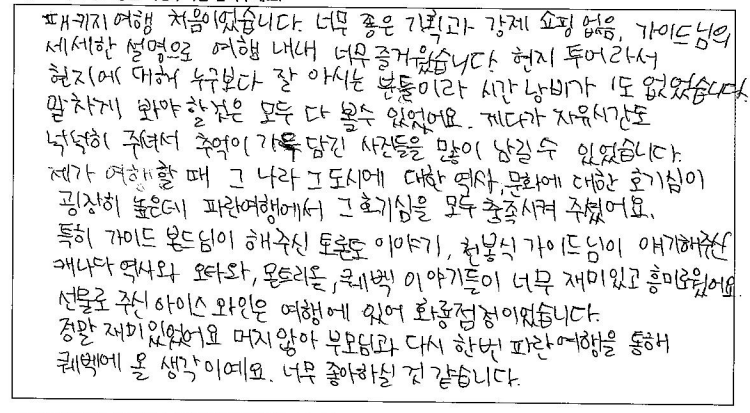 패키지여행 처음이었습니다. 너무 좋은 기획과 강제 쇼핑 없음, 가이드님의
세세한 설명으로 여행 내내 너무즐거웠습니다. 현지 투어라서
현지에 대해 누구보다 잘 아시는 분들이라 시간 낭비가 1도 없었습니다.
알차게 봐야 할것은 모두 다 볼수 있었어요. 게다가 자유시간도
넉넉히 주셔서 추억이 가득 담긴 사진들을 많이 남길 수 있었습니다.
제가 여행할 때 그 나라 그 도시에 대한 역사, 문화에 대한 호기심이
굉장히 높은데 파란여행에서 그 호기심을 모두 충족시켜 주셨어요.
특히 가이드 본드님이 해주신 토론토 이야기, 천봉식 가이드님이 얘기해주신
캐나다 역사와 오타와, 몬트리올, 퀘벡 이야기들이 너무 재미있고 흥미로웠어요.
선물로 주신 아이스 와인은 여행에 있어 화룡점정이었습니다.
정말 재미있었어요 머지않아 부모님과 다시 한번 파란여행을 통해
퀘벡에 올 생각이예요. 너무 좋아하실 것 같습니다.